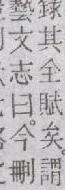 錄其全賦矣。謂
藝文志曰。今刪